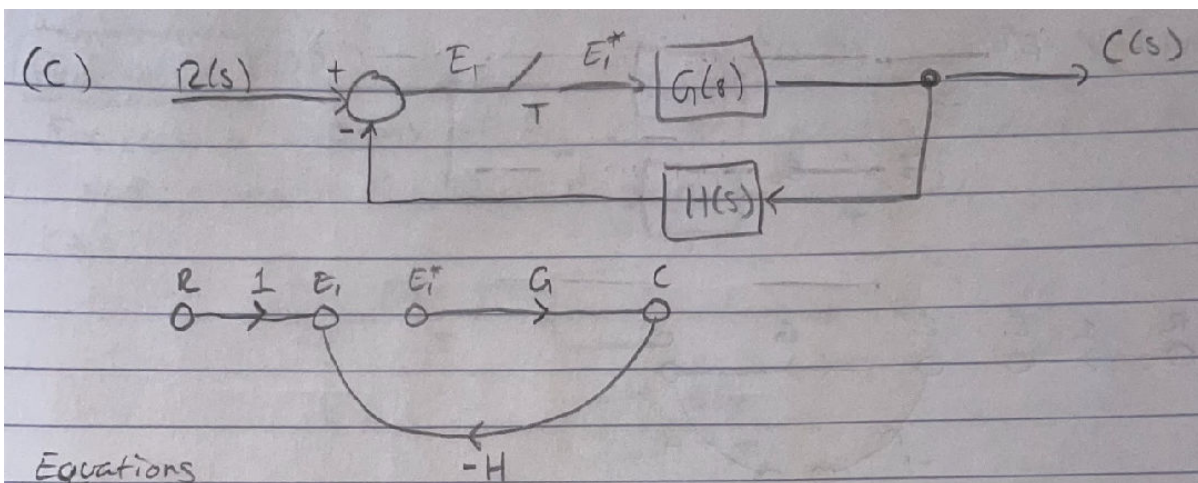 (C) R(s) + E₁ E₁* G(s) C(s)
- T
H(s)
R 1 E₁ E₁* G C
-H
Equations